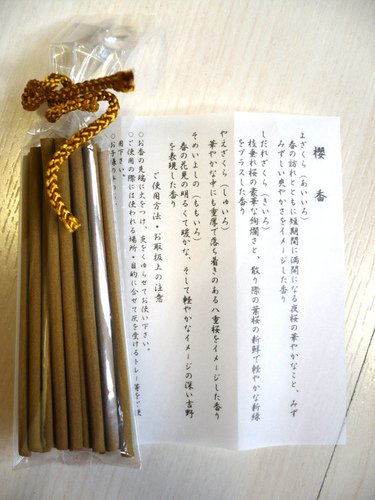 櫻香
よざくら(あいいろ)
春の訪れとともに短期間に満開になる夜桜の華やかなこと、みず
みずしい爽やかさをイメージした香り
しだれざくら(きいろ)
枝垂れ桜の豪華な絢爛さと、散り際の葉桜の新鮮で軽やかな新緑
をプラスした香り
やえざくら(しゅいろ)
華やかな中にも重厚で落ち着きのある八重桜をイメージした香り
そめいよしの(ももいろ)
春の花見の明るくて暖かな、そして軽やかなイメージの深い吉野
を表現した香り
ご使用方法・お取扱上の注意
○お香の先端に火をつけ、炎をくゆらせてお使い下さい。
○ご使用の際には使われる場所・目的に合せて灰を受けるトレー等をご使
用下さい。
○お子様の